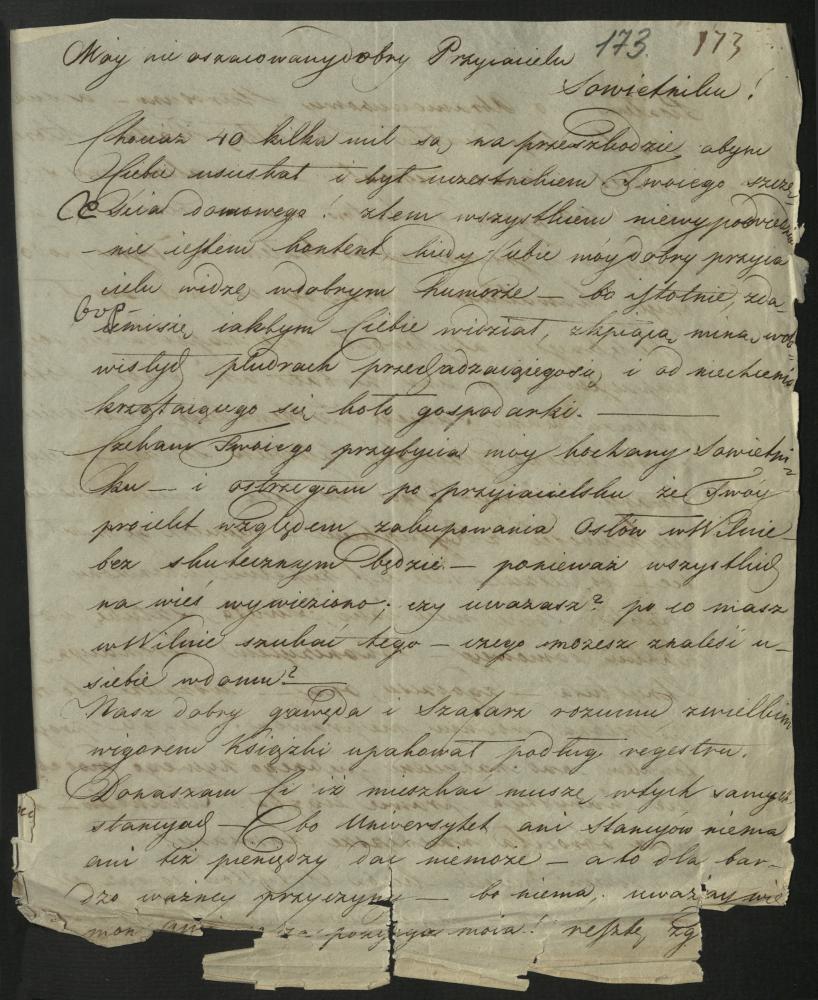 173. 173
Móy nie oszacowany dobry Przyiacielu
Sowietniku!
Chociaż 40 kilka mil są na przeszkodzie abym
Ciebie usciskał i był uczestnikiem Twoiego szczę
ścia domowego! ztem wszystkiem niewypowiedzia
-nie iestem kontent kiedy Ciebie móy dobry przyia
cielu widzę wdobrym humorze — bo istotnie, zda-
iemisię iakbym Ciebie widział, zkpiącą miną, wob-
wisłych pludrach przechadzaiącegosię i od niechcenia
krzątaiącego się koło gospodarki. —
Czekam Twoiego przybycia móy kochany Sowietni-
ku — i ostrzegam po przyiacielsku że Twóy
proiekt względem zakupowania Osłów wWilnie
bez skutecznym będzie — ponieważ wszystkich
na wieś wywieziono; czy uważasz? po co masz
wWilnie szukać tego — czego możesz znaleść u-
siebie wdomu? —
Nasz dobry gawęda i Szafarz rozumu zwielkim
wigorem Książki upakował podług regestru.
Donaszam Ci iż mieszkać muszę wtych samych
stancyach — bo Uniwersytet ani Stancyów niema
ani też pieniędzy dać niemoże — a to dla bar-
dzo ważney przyczyny — bo niema, uważay
moia! resztę